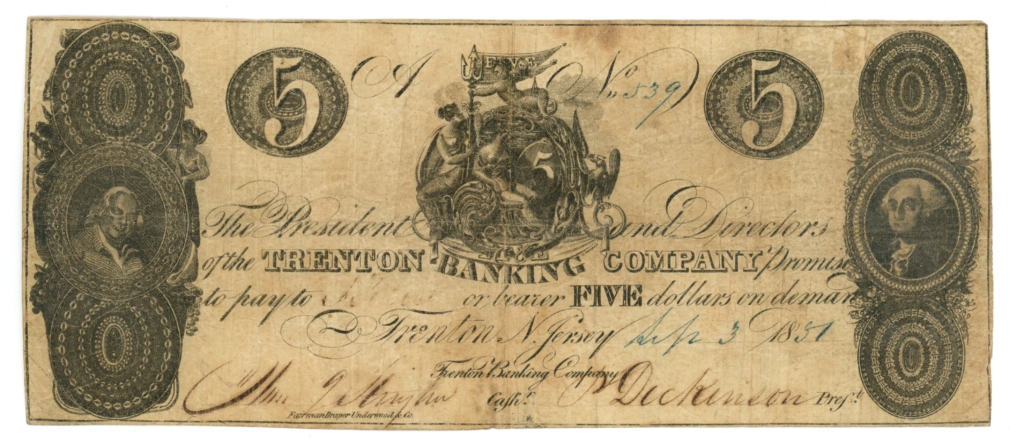 5 A No 539 5
FIVE
5
The President and Directors
of the TRENTON BANKING COMPANY Promise
to pay to or bearer FIVE dollars on deman
Trenton N. Jersey Sep 3 1831
Trenton Banking Company
Cashr. P Dickinson Prest.
Fairman Draper Underwood & Co.